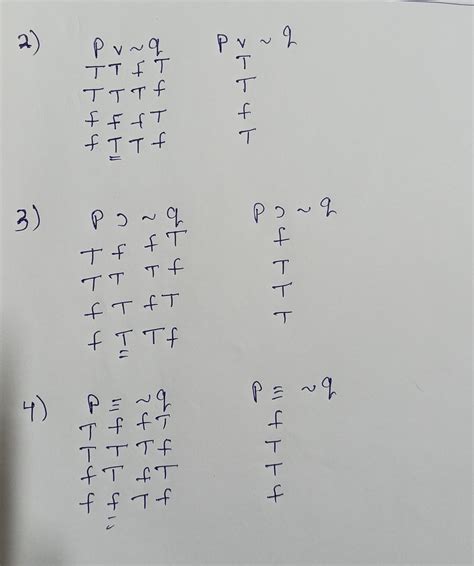 2) P v ~ q P v ~ q
T T f T T
T T T f T
f f f T f
f T T f T
3) P ⊃ ~ q P ⊃ ~ q
T f f T f
T T T f T
f T f T T
f T T f T
4) P ≡ ~ q P ≡ ~ q
T f f T f
T T T f T
f T f T T
f f T f f